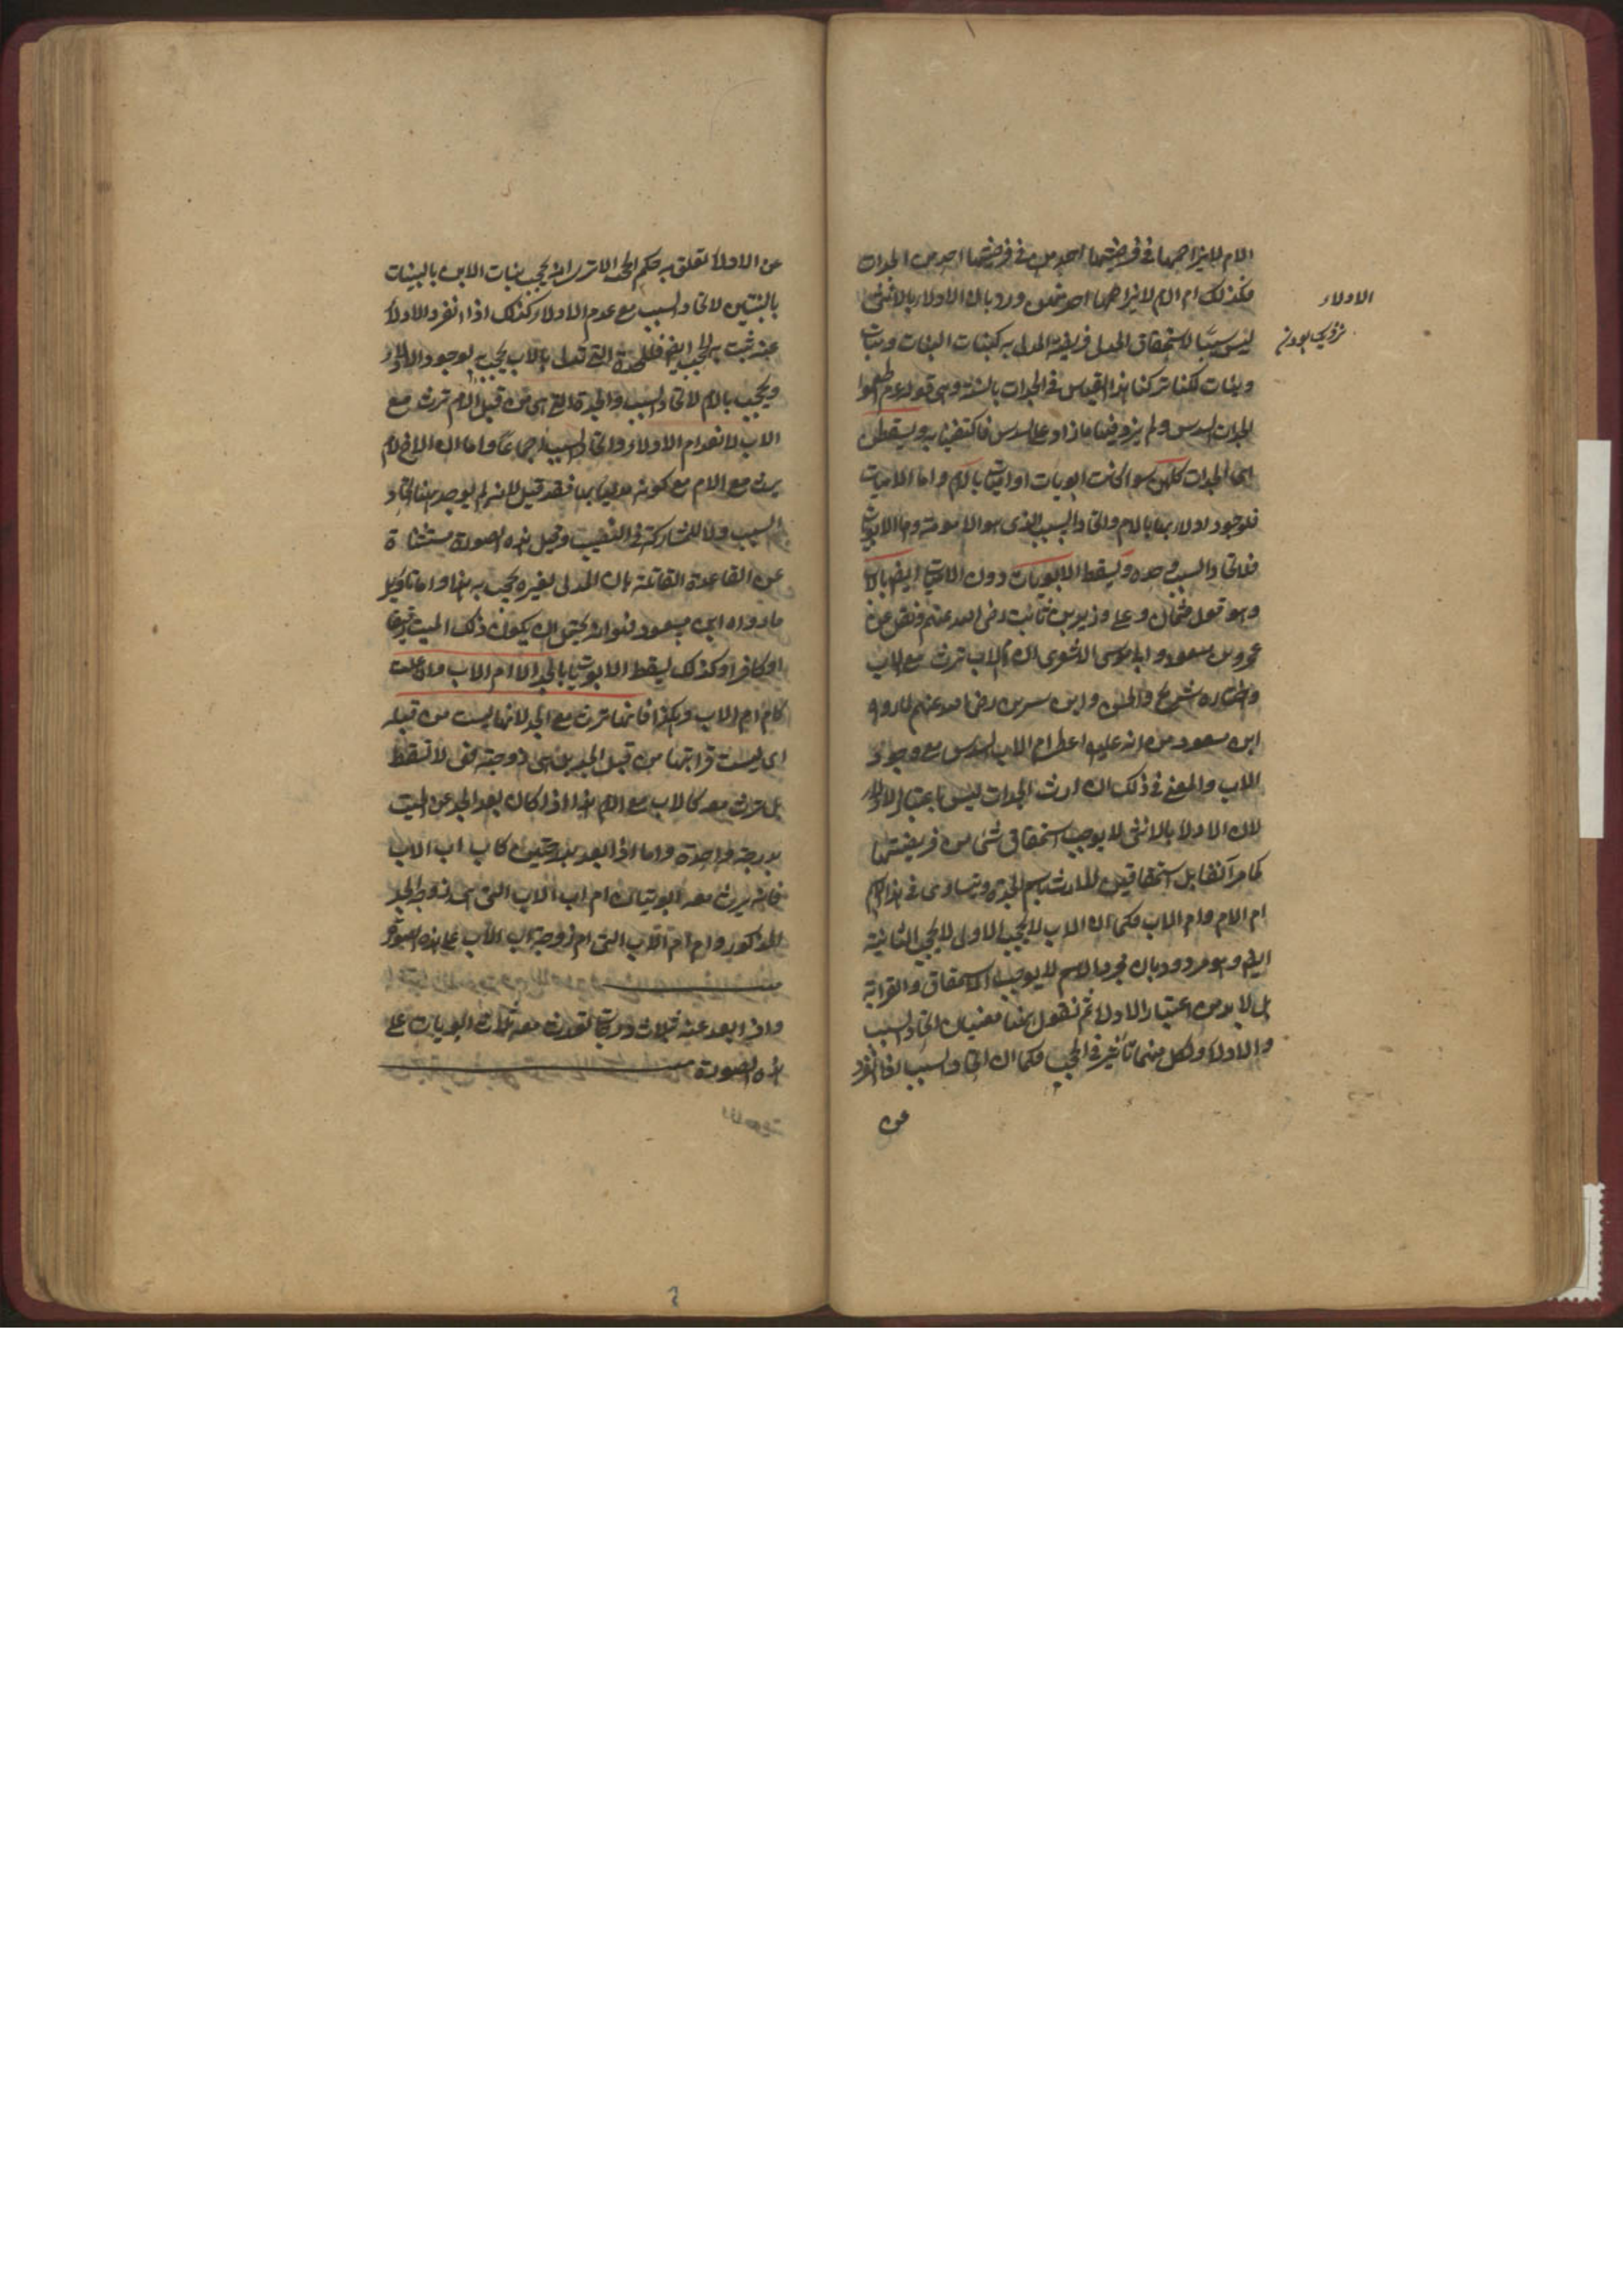 الام لا يزاحمها في فريضتها احد من في فريضتها احد من الجدات
فكذلك ام الام لا يزاحمها احد منهن ورد بان الادلاء بالانثى
ليس سببا لاستحقاق المدلي فريضة المدلى به كبنات البنات وبنات
وبنات لكنا تركنا هذا القياس في الجدات بالسنة وهي قوله عم اطعموا
الجدات السدس ولم يزد فيها ماذا وعلى السدس فاكتفينا به ويسقطن
اى الجدات كلهن سواء كانت ابويات او اميات بالام واما الاميات
فلوجود ادلاءها بالام واتحاد السبب الذى هو الامومة واما الابويات
فلاتحاد السبب وحده ويسقط الابويات دون الاميات ايضا بالاب
وهو قول عثمان وعلى وزيد بن ثابت رضى الله عنهم ونقل عن
عمر وبن مسعود وابا موسى الاشعرى ان ام الاب ترث مع الاب
واختاره شريح والحسن وابن سرين رضى الله عنهم لما رواه
ابن مسعود من انه عليه اعطى ام الاب السدس مع وجود
الاب والمعنى في ذلك ان ارث الجدات ليس باعتبار الادلاء
لان الادلاء بالانثى لا يوجب استحقاق شئ من فريضتها
كما مر آنفا بل استحقاقهن للارث باسم الجدة ويتساوى فى هذا الاسم
ام الام وام الاب فكما ان الاب لا يحجب الاولى لا يحجب الثانية
ايضا وهو مردود بان مجرد الاسم لا يوجب الاستحقاق والقرابة
بل لا بد من اعتبار الادلاء ثم نقول هنا معنيان اتحاد السبب
والادلاء ولكل منهما تأثير في الحجب فكما ان اتحاد السبب اذا انفرد
عن
الادلاء
عن الادلاء تعلق به حكم الحجب الا ترى انه يحجب بنات الابن بالبنات
بالبنتين لاتحاد السبب مع عدم الادلاء وكذلك اذا انفرد الادلاء
عنه ثبت به الحجب ايضا فالجدة التي تدلى بالاب يحجب به لوجود الادلاء
ويحجب بالام لاتحاد السبب والجدة التي هي من قبل الام ترث مع
الاب لانعدام الادلاء واتحاد السبب اجماعا واما ان الاخ لام
يرث مع الام مع كونه مدليا بها فقد قيل لانه لم يوجد هنا اتحاد
السبب ولا المشاركة فى النصيب وقيل هذه الصورة مستثناة
عن القاعدة القائلة بان المدلى بغيره يحجب به هذا واما تأويل
ما رواه ابن مسعود فهو انه يحتمل ان يكون ذلك الميت رقيقا
او كافرا وكذلك يسقط الابويات بالجد الا ام الاب وان علت
كام ام الاب وهكذا فانها ترث مع الجد لانها ليست من قبله
اى ليست قرابتها من قبل الجد بل هى زوجته حتى لا تسقط
بل ترث معه كالاب مع الام هذا اذا كان بعد الجد عن الميت
بدرجة واحدة واما اذا بعد بدرجتين كاب اب الاب
فانه يرث معه ابويتان ام اب الاب التى هى زوجة الجد
المذكور وام ام الاب التى ام زوجة اب الاب على هذه الصورة
واذا بعد عنه بثلاث درجات تورث معه ثلاث ابويات على
هذه الصورة